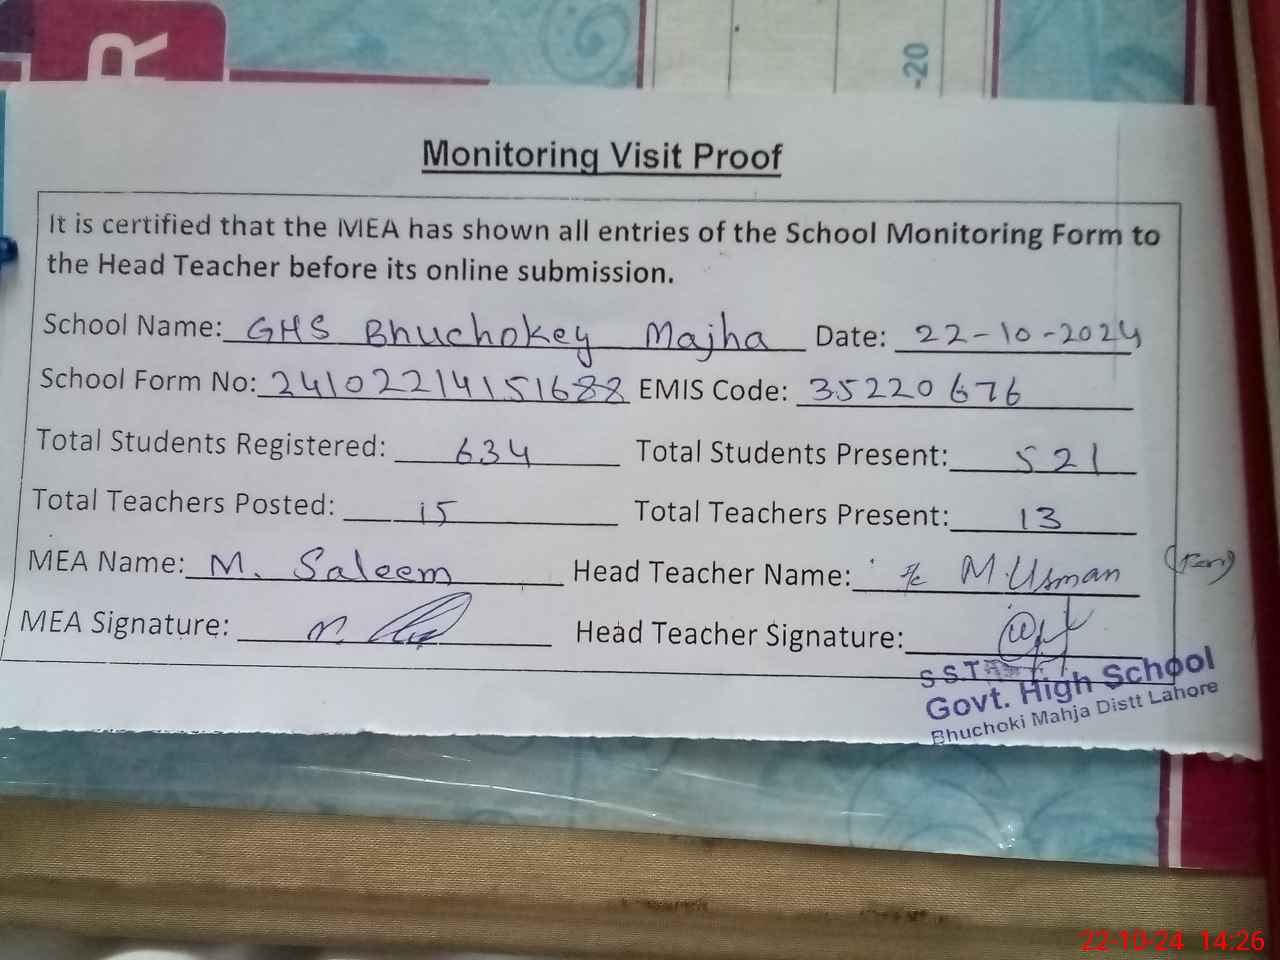 R
-20
Monitoring Visit Proof
It is certified that the MEA has shown all entries of the School Monitoring Form to
the Head Teacher before its online submission.
School Name: GHS Bhuchokey Majha Date: 22-10-2024
School Form No: 24102214151688 EMIS Code: 35220676
Total Students Registered: 634 Total Students Present: 521
Total Teachers Posted: 15 Total Teachers Present: 13
MEA Name: M. Saleem Head Teacher Name: M. Usman
MEA Signature: Head Teacher Signature:
S.S.T
Govt. High School
Bhuchoki Mahja Distt Lahore
22-10-24 14:26